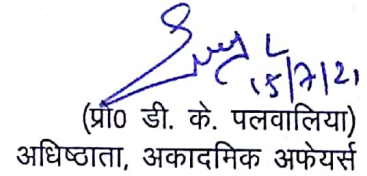 15/7/21
(प्रो0 डी. के. पलवालिया)
अधिष्ठाता, अकादमिक अफेयर्स